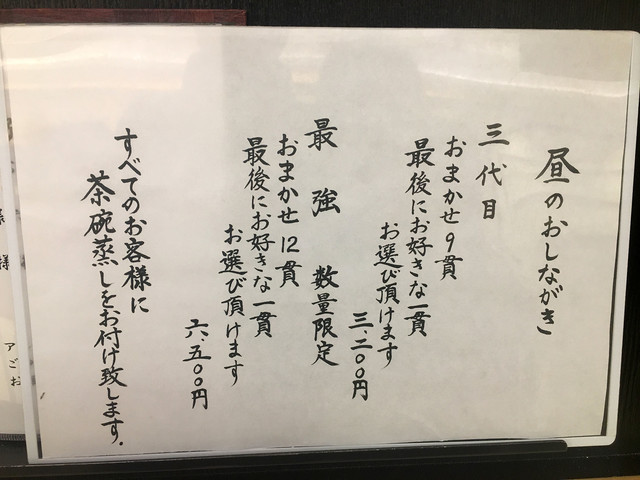 昼のおしながき
三代目
おまかせ9貫
最後にお好きな一貫
お選び頂けます
三、二〇〇円
最強 数量限定
おまかせ12貫
最後にお好きな一貫
お選び頂けます
六、五〇〇円
すべてのお客様に
茶碗蒸しをお付け致します.
様
アご
お